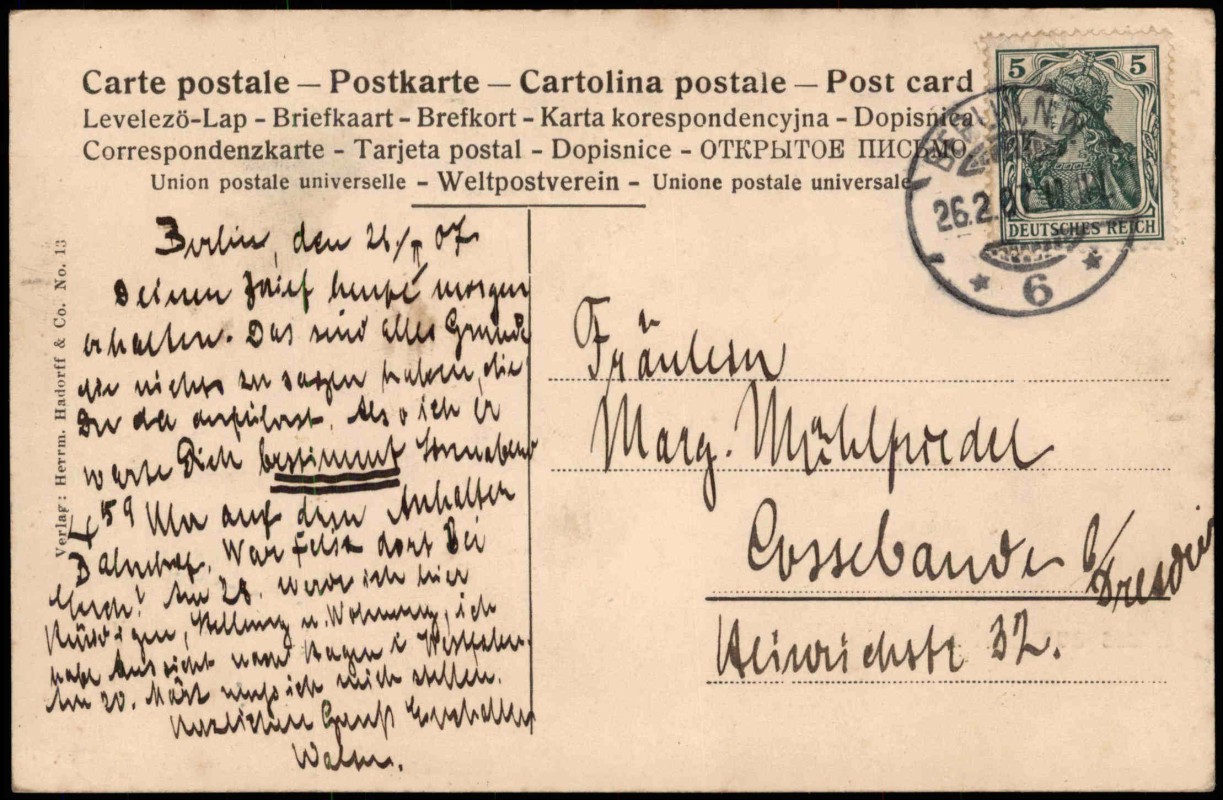 Carte postale – Postkarte – Cartolina postale – Post card
Levelezö-Lap - Briefkaart - Brefkort - Karta korespondencyjna - Dopisnica
Correspondenzkarte - Tarjeta postal - Dopisnice - ОТКРЫТОЕ ПИСЬМО
Union postale universelle - Weltpostverein - Unione postale universale
5 5
DEUTSCHES REICH
BERLIN N.W.
26.2.07
* 6 *
Verlag: Herrm. Hadorff & Co. No. 13
Berlin, den 26/II 07
Deinen Brief heute morgen
erhalten. Das sind alles Gründe
die nichts zu sagen haben, die
Du da anführst. Also ich er
warte Dich bestimmt Sonnabend
4 59 Uhr auf dem Anhalter
Bahnhof. dort bei
Am 28. werde ich hier
kündigen, Stellung u. Wohnung, ich
habe Aussicht nach Hagen i Westfalen.
Am 20. März muß ich mich stellen.
Herzlichen Gruß
Walter.
Fräulein
Marg. Mühlfriedel
Cossebaude b/
Dresden
Heinrichstr 32.